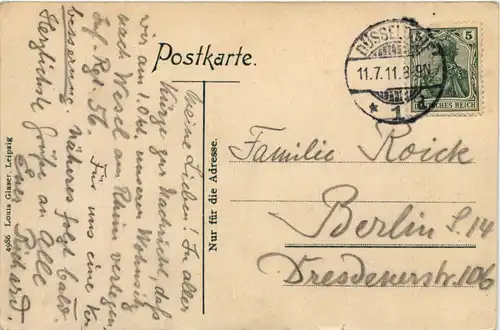 Postkarte.
Meine Lieben! In aller
Kürze zur Nachricht, daß
wir am 1. Okt. unseren Wohnsitz
nach Wesel am Rhein verlegen.
Inf. Rgt. 56. Für uns eine Ver-
besserung. Näheres folgt bald.
Herzlichste Grüße an Alle
Euer Richard.
4986 Louis Glaser, Leipzig
Nur für die Adresse.
DÜSSELDORF
11.7.11.8-9N
* 1 d
5
DEUTSCHES REICH
Familie Roick
Berlin S. 14
Dresdenerstr. 106